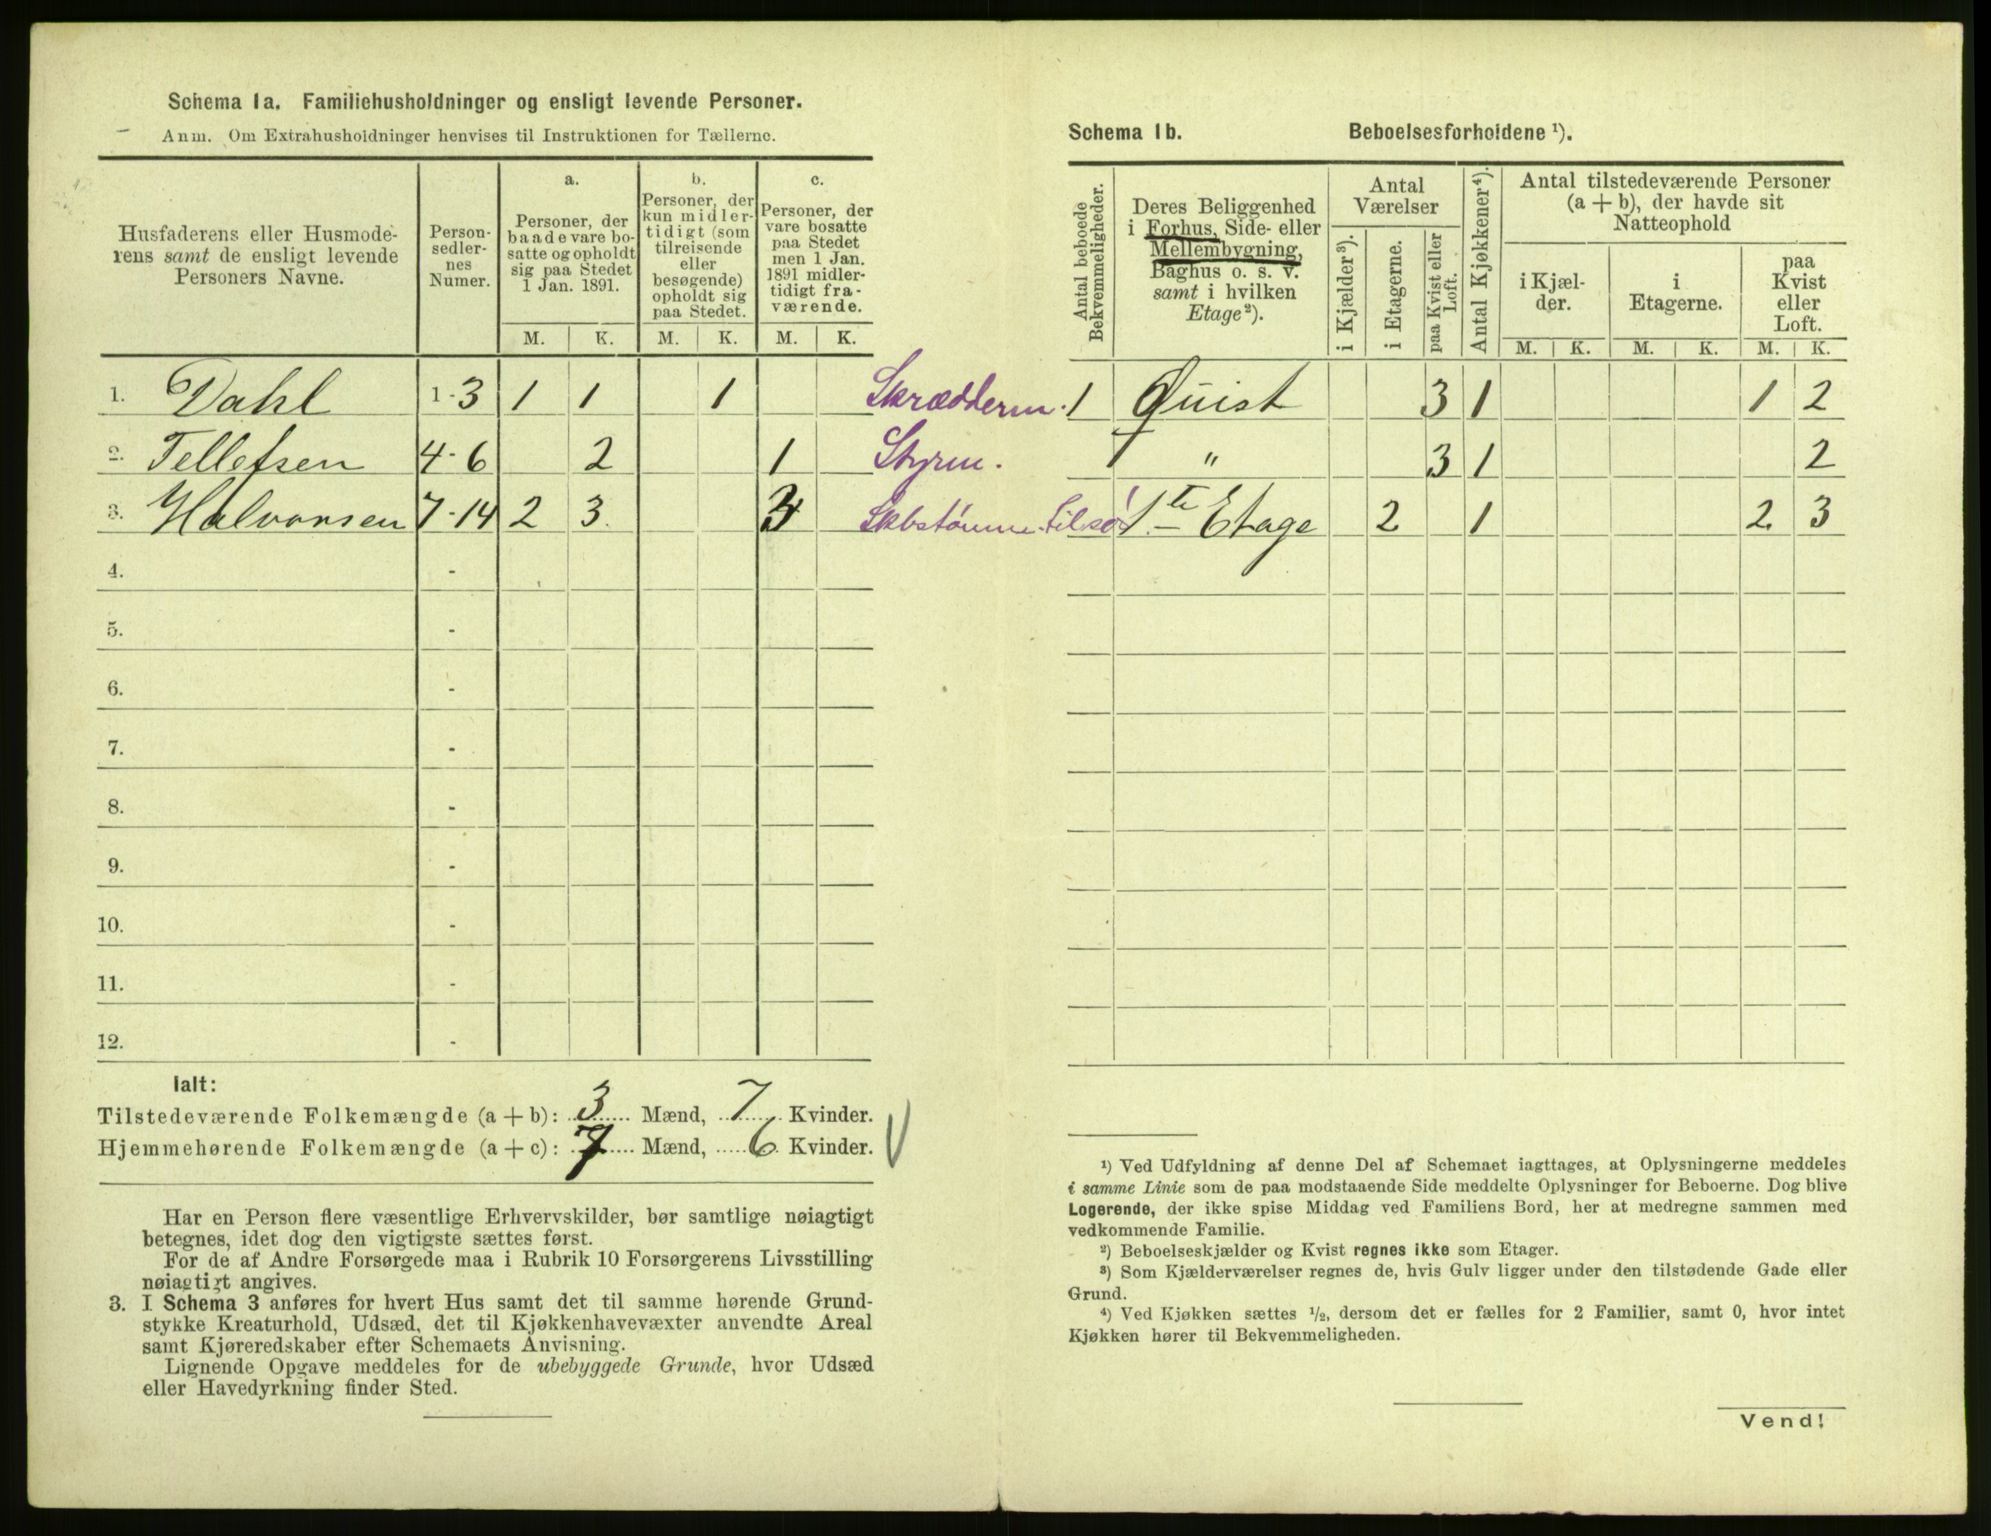 Schema 1a. Familiehusholdninger og ensligt levende Personer.
Anm. Om Extrahusholdninger henvises til Instruktionen for Tællerne.
Husfaderens eller Husmode-
rens samt de ensligt levende
Personers Navne.
Person-
sedler-
nes
Numer.
a.
Personer, der
baade vare bo-
satte og opholdt
sig paa Stedet
1 Jan. 1891.
b.
Personer, der
kun midler-
tidigt (som
tilreisende
eller
besøgende)
opholdt sig
paa Stedet.
c.
Personer, der
vare bosatte
paa Stedet
men 1 Jan.
1891 midler-
tidigt fra-
værende.
M. K. M. K. M. K.
1. Dahl 1-3 1 1 1 Skrædderm.
2. Tellefsen 4-6 2 1 Styrm.
3. Halvorsen 7-14 2 3
4. -
5. -
6. -
7. -
8. -
9. -
10. -
11. -
12. -
Ialt:
Tilstedeværende Folkemængde (a + b): 3 Mænd, 7 Kvinder.
Hjemmehørende Folkemængde (a + c): 7 Mænd, 6 Kvinder.
Har en Person flere væsentlige Erhvervskilder, bør samtlige nøiagtigt
betegnes, idet dog den vigtigste sættes først.
For de af Andre Forsørgede maa i Rubrik 10 Forsørgerens Livsstilling
nøiagtigt angives.
3. I Schema 3 anføres for hvert Hus samt det til samme hørende Grund-
stykke Kreaturhold, Udsæd, det til Kjøkkenhavevæxter anvendte Areal
samt Kjøreredskaber efter Schemaets Anvisning.
Lignende Opgave meddeles for de ubebyggede Grunde, hvor Udsæd
eller Havedyrkning finder Sted.
Schema 1b. Beboelsesforholdene ¹).
Antal beboede
Bekvemmeligheder.
Deres Beliggenhed
i Forhus, Side- eller
Mellembygning,
Baghus o. s. v.
samt i hvilken
Etage²).
Antal
Værelser
i Kjælder³).
i Etagerne.
paa Kvist eller
Loft.
Antal Kjøkkener⁴).
Antal tilstedeværende Personer
(a + b), der havde sit
Natteophold
i Kjæl-
der.
i
Etagerne.
paa
Kvist
eller
Loft.
M. K. M. K. M. K.
1 Quist 3 1 1 2
1 " 3 1 2
1 te Etage 2 1 2 3
¹) Ved Udfyldning af denne Del af Schemaet iagttages, at Oplysningerne meddeles
i samme Linie som de paa modstaaende Side meddelte Oplysninger for Beboerne. Dog blive
Logerende, der ikke spise Middag ved Familiens Bord, her at medregne sammen med
vedkommende Familie.
²) Beboelseskjælder og Kvist regnes ikke som Etager.
³) Som Kjælderværelser regnes de, hvis Gulv ligger under den tilstødende Gade eller
Grund.
⁴) Ved Kjøkken sættes ¹/₂, dersom det er fælles for 2 Familier, samt 0, hvor intet
Kjøkken hører til Bekvemmeligheden.
Vend!